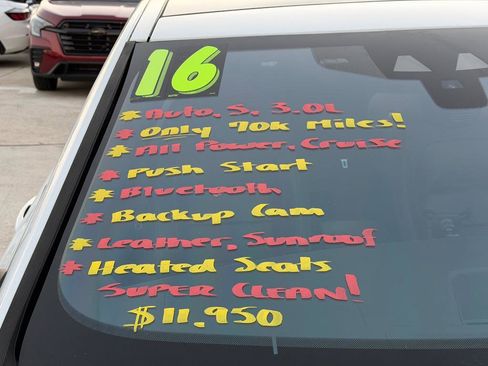 16
* Auto, S, 3.0L
* Only 90k Miles!
* All Power, Cruise
* Push Start
* Bluetooth
* Backup Cam
* Leather, Sunroof
* Heated Seats
Super Clean!
$11,950